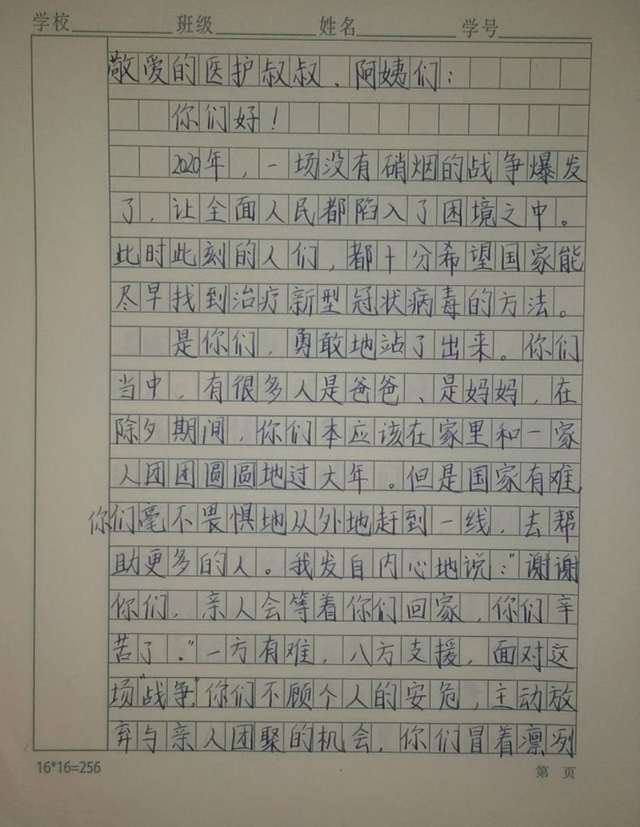 学校 班级 姓名 学号
敬爱的医护叔叔、阿姨们：
你们好！
2020年，一场没有硝烟的战争爆发
了，让全面人民都陷入了困境之中。
此时此刻的人们，都十分希望国家能
尽早找到治疗新型冠状病毒的方法。
是你们，勇敢地站了出来。你们
当中，有很多人是爸爸、是妈妈，在
除夕期间，你们本应该在家里和一家
人团团圆圆地过大年。但是国家有难，
你们毫不畏惧地从外地赶到一线，去帮
助更多的人。我发自内心地说：“谢谢
你们，亲人会等着你们回家，你们辛
苦了。”一方有难，八方支援，面对这
场“战争”你们不顾个人的安危，主动放
弃与亲人团聚的机会，你们冒着凛冽
16*16=256 第 页